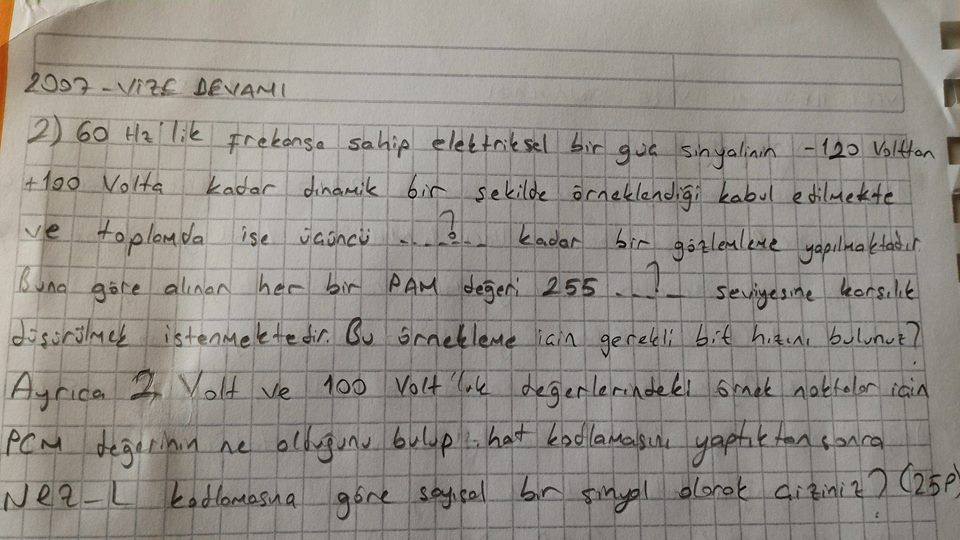 2007 - VİZE DEVAMI
2) 60 Hz'lik frekansa sahip elektriksel bir güç sinyalinin -120 Volttan
+100 Volta kadar dinamik bir şekilde örneklendiği kabul edilmekte
ve toplamda ise üçüncü ....?.... kadar bir gözlemleme yapılmaktadır.
Buna göre alınan her bir PAM değeri 255 ...?... seviyesine karşılık
düşürülmek istenmektedir. Bu örnekleme için gerekli bit hızını bulunuz?
Ayrıca 2 Volt ve 100 Volt'luk değerlerindeki örnek noktalar için
PCM değerinin ne olduğunu bulup hat kodlamasını yaptıktan sonra
NRZ-L kodlamasına göre sayısal bir sinyal olarak çiziniz? (25P)